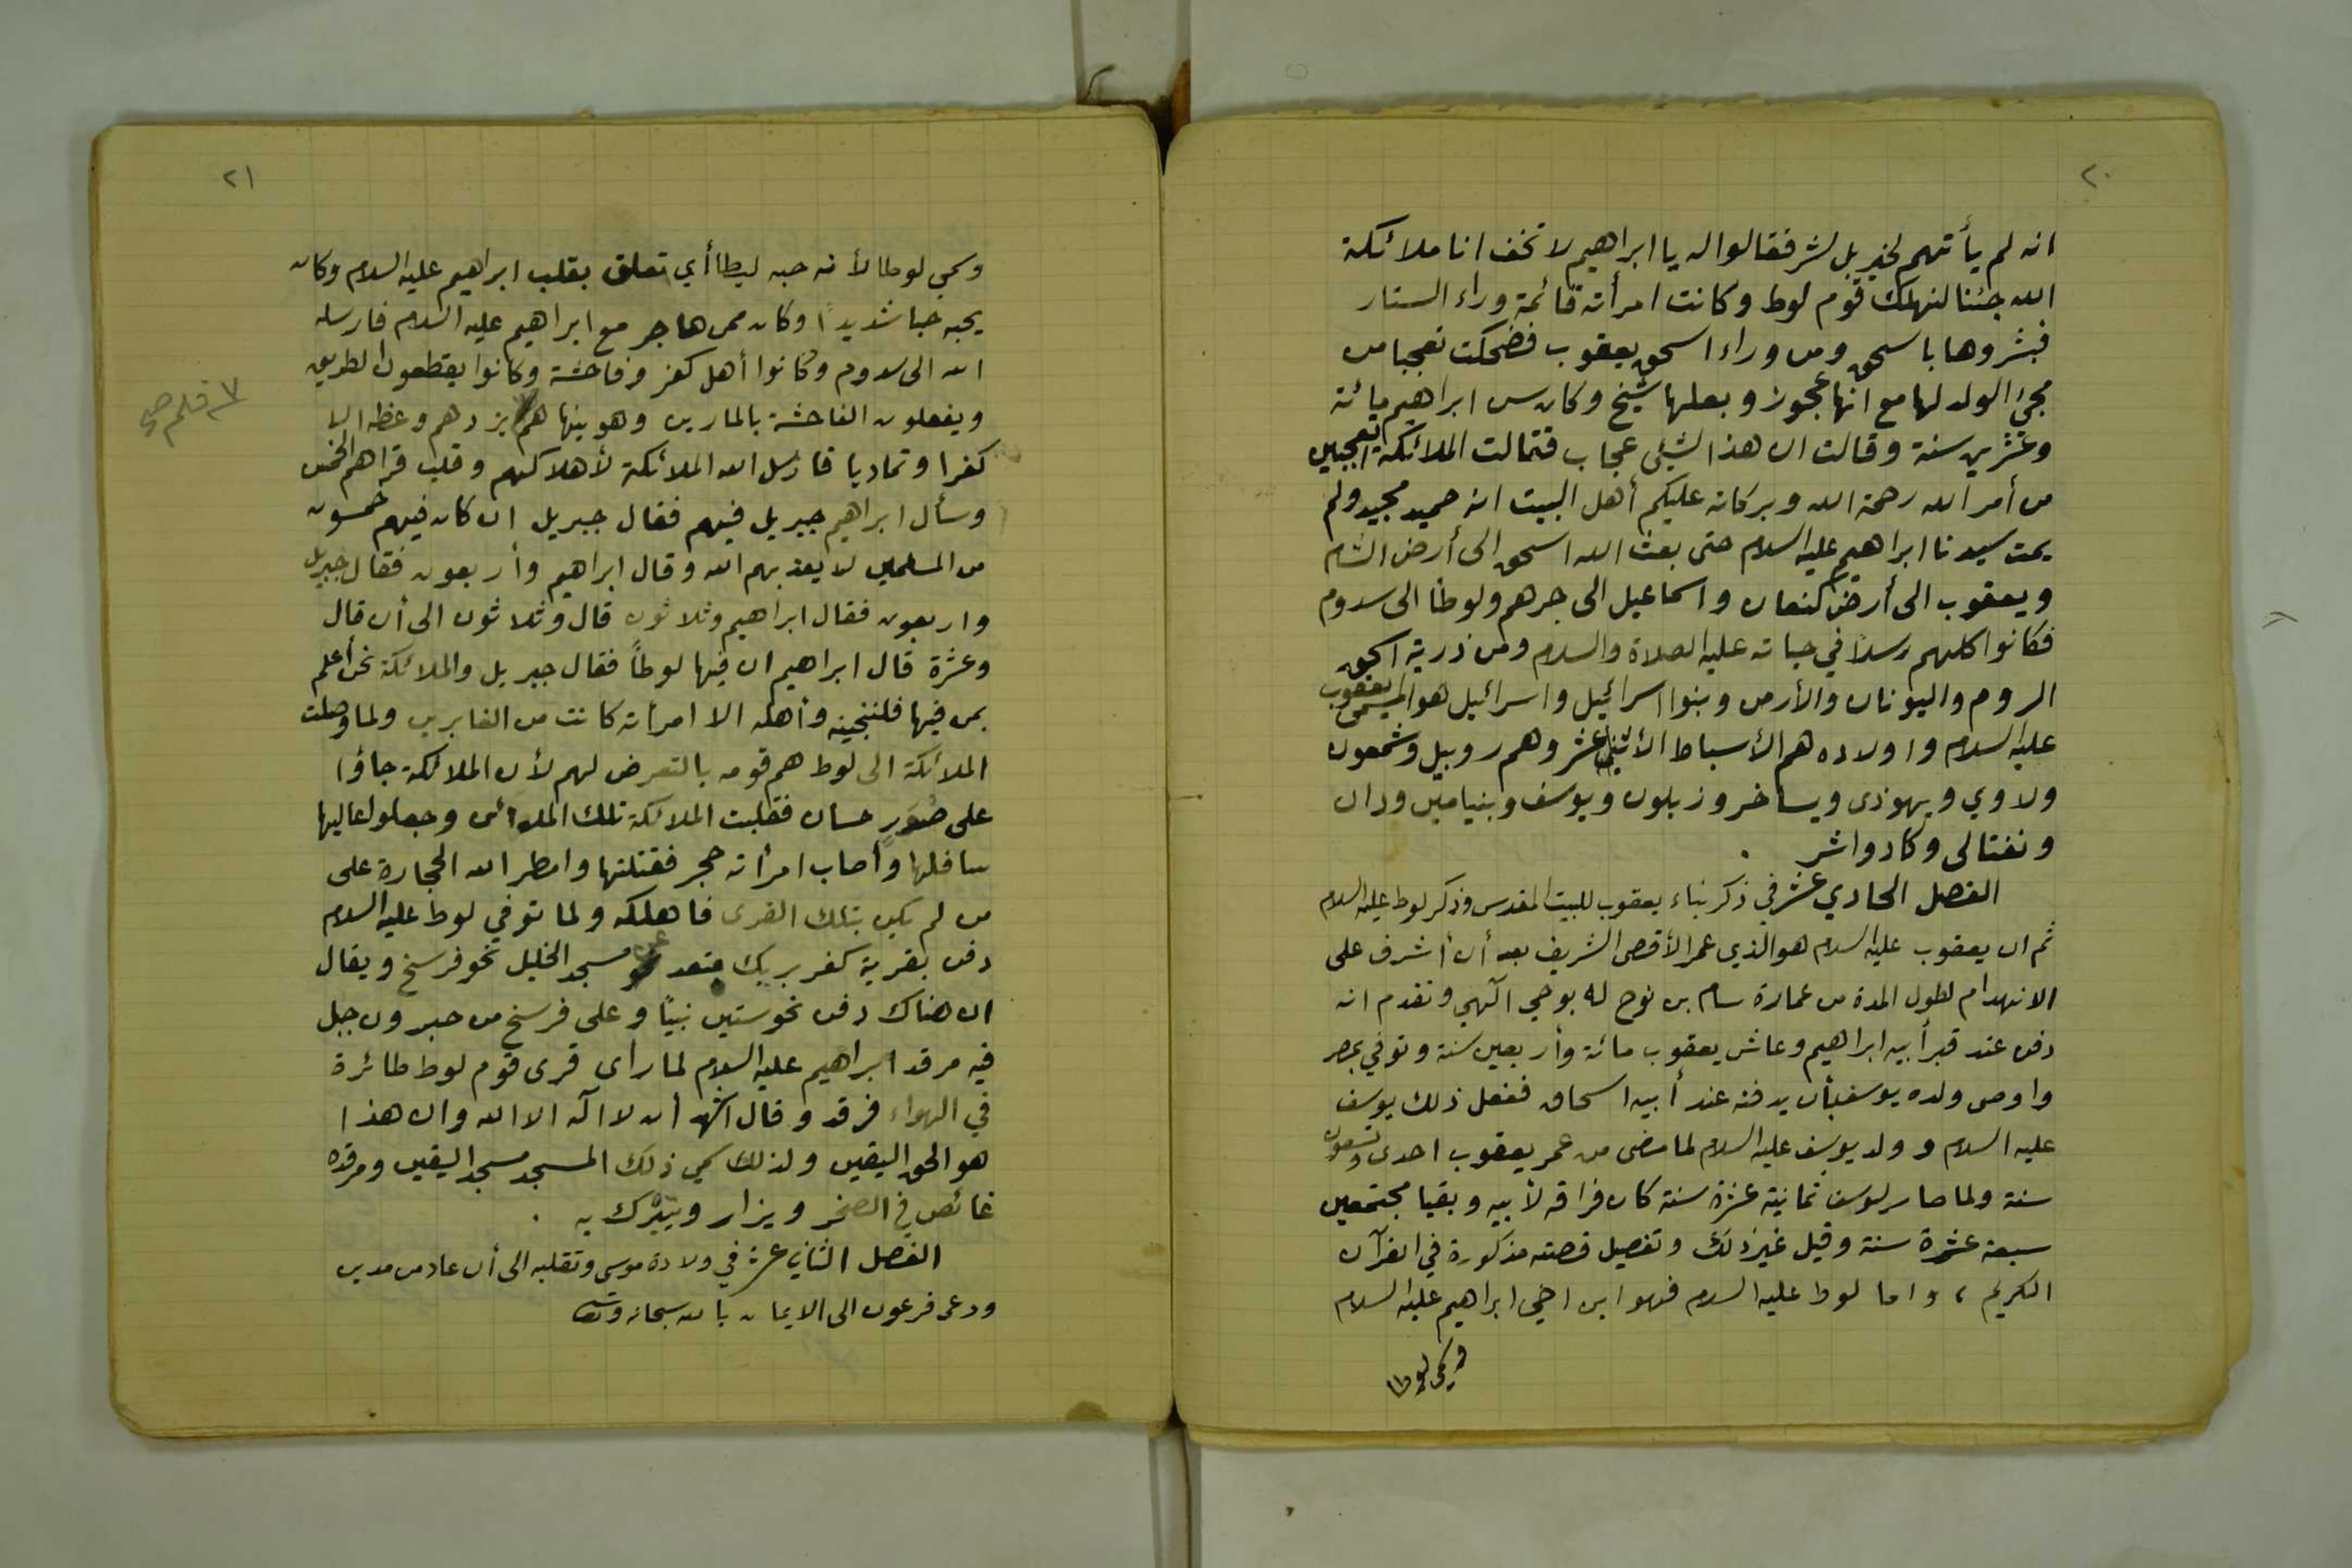 ٢٠
انه لم يأتهم لخير بل لشر فقالوا له يا ابراهيم لا تخف انا ملائكة
الله جئنا لنهلك قوم لوط وكانت امرأته قائمة وراء الستار
فبشروها باسحق ومن وراء اسحق يعقوب فضحكت تعجبا من
مجئ الولد لها مع انها عجوز وبعلها شيخ وكان سن ابراهيم مائة
وعشرين سنة وقالت ان هذا لشئ عجاب فقالت الملائكة اتعجبين
من أمر الله رحمة الله وبركاته عليكم أهل البيت انه حميد مجيد ولم
يمت سيدنا ابراهيم عليه السلام حتى بعث الله اسحق الى أرض الشام
ويعقوب الى أرض كنعان واسماعيل الى جرهم ولوطا الى سدوم
فكانوا كلهم رسلاً في حياته عليه الصلاة والسلام ومن ذرية اسحق
الروم واليونان والأرمن وبنوا اسرائيل واسرائيل هو المسمى يعقوب
عليه السلام واولاده هم الأسباط الأثني عشر وهم روبيل وشمعون
ولاوي ويهوذى ويساخر وزبلون ويوسف وبنيامين ودان
ونفتالى وكاد واشر .
الفصل الحادي عشر في ذكر بناء يعقوب للبيت المقدس وذكر لوط عليه السلام
ثم ان يعقوب عليه السلام هو الذي عمر الأقصى الشريف بعد أن أشرف على
الانهدام لطول المدة من عمارة سام بن نوح له بوحي الٓهي وتقدم انه
دفن عند قبر أبيه ابراهيم وعاش يعقوب مائة وأربعين سنة وتوفي بمصر
واوصى ولده يوسف بأن يدفنه عند أبيه اسحاق ففعل ذلك يوسف
عليه السلام وولد يوسف عليه السلام لما مضى من عمر يعقوب احدى وتسعون
سنة ولما صار ليوسف ثمانية عشرة سنة كان فراقه لأبيه وبقيا مجتمعين
سبعة عشرة سنة وقيل غير ذلك وتفصيل قصته مذكورة في القرآن
الكريم ، واما لوط عليه السلام فهو ابن اخي ابراهيم عليه السلام
وسمي لوطا
٢١
وسمي لوطا لأنه حبه ليطا أي تعلق بقلب ابراهيم عليه السلام وكان
يحبه حبا شديداً وكان ممن هاجر مع ابراهيم عليه السلام فارسله
الله الى سدوم وكانوا أهل كفر وفاحشة وكانوا يقطعون الطريق
ويفعلون الفاحشة بالمارين وهو ينهاهم يزدهم وعظه الا
كفرا وتماديا فارسل الله الملائكة لأهلاكهم وقلب قراهم الخمس
وسأل ابراهيم جبريل فيهم فقال جبريل ان كان فيهم خمسون
من المسلمين لا يعذبهم الله وقال ابراهيم وأربعون فقال جبريل
واربعون فقال ابراهيم وثلاثون قال وثلاثون الى أن قال
وعشرة قال ابراهيم ان فيها لوطاً فقال جبريل والملائكة نحن أعلم
بمن فيها فلننجينه وأهله الا امرأته كانت من الغابرين ولما وصلت
الملائكة الى لوط هم قومه بالتعرض لهم لأن الملائكة جاؤا
على صُوَرٍ حسان فقلبت الملائكة تلك المدائن وجعلوا عاليها
سافلها وأصاب امرأته حجر فقتلتها وامطر الله الحجارة على
من لم يكن بتلك القرى فاهلكه ولما توفي لوط عليه السلام
دفن بقرية كفر بريك مسجد الخليل نحو فرسخ ويقال
ان هناك دفن نحو ستين نبيًا وعلى فرسخ من حبرون جبل
فيه مرقد ابراهيم عليه السلام لما رأى قرى قوم لوط طائرة
في الهواء فرقد وقال اشهد أن لا اله الا الله وان هذا
هو الحق اليقين ولذلك سمي ذلك المسجد مسجد اليقين ومرقده
غائص في الصخر ويزار ويتبرك به .
الفصل الثاني عشر في ولادة موسى وتقلبه الى أن عاد من مدين
ودعى فرعون الى الايمان بالله سبحانه وتعا